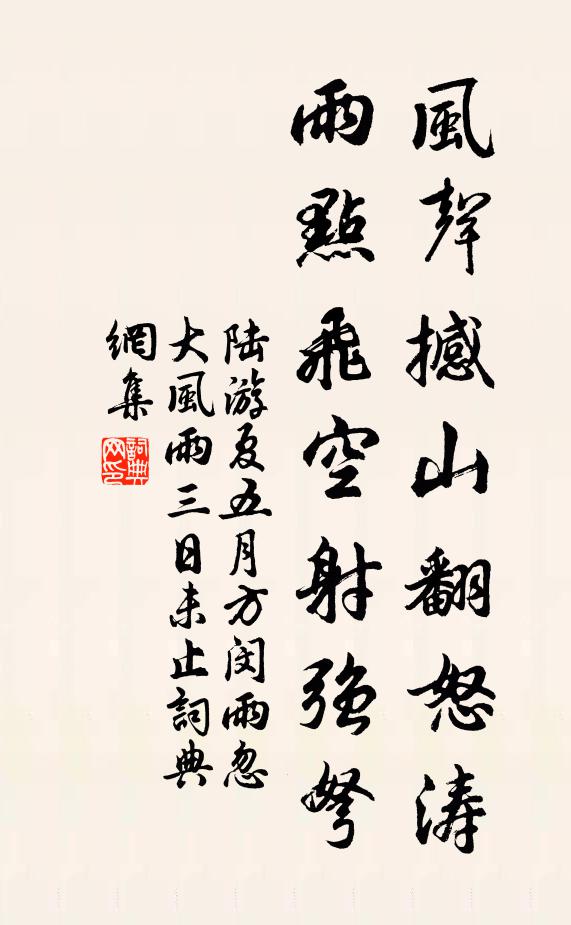 風聲撼山翻怒濤
雨點飛空射強弩
陸游夏五月方閔雨忽
大風雨三日未止詞典
網集
詞典网印